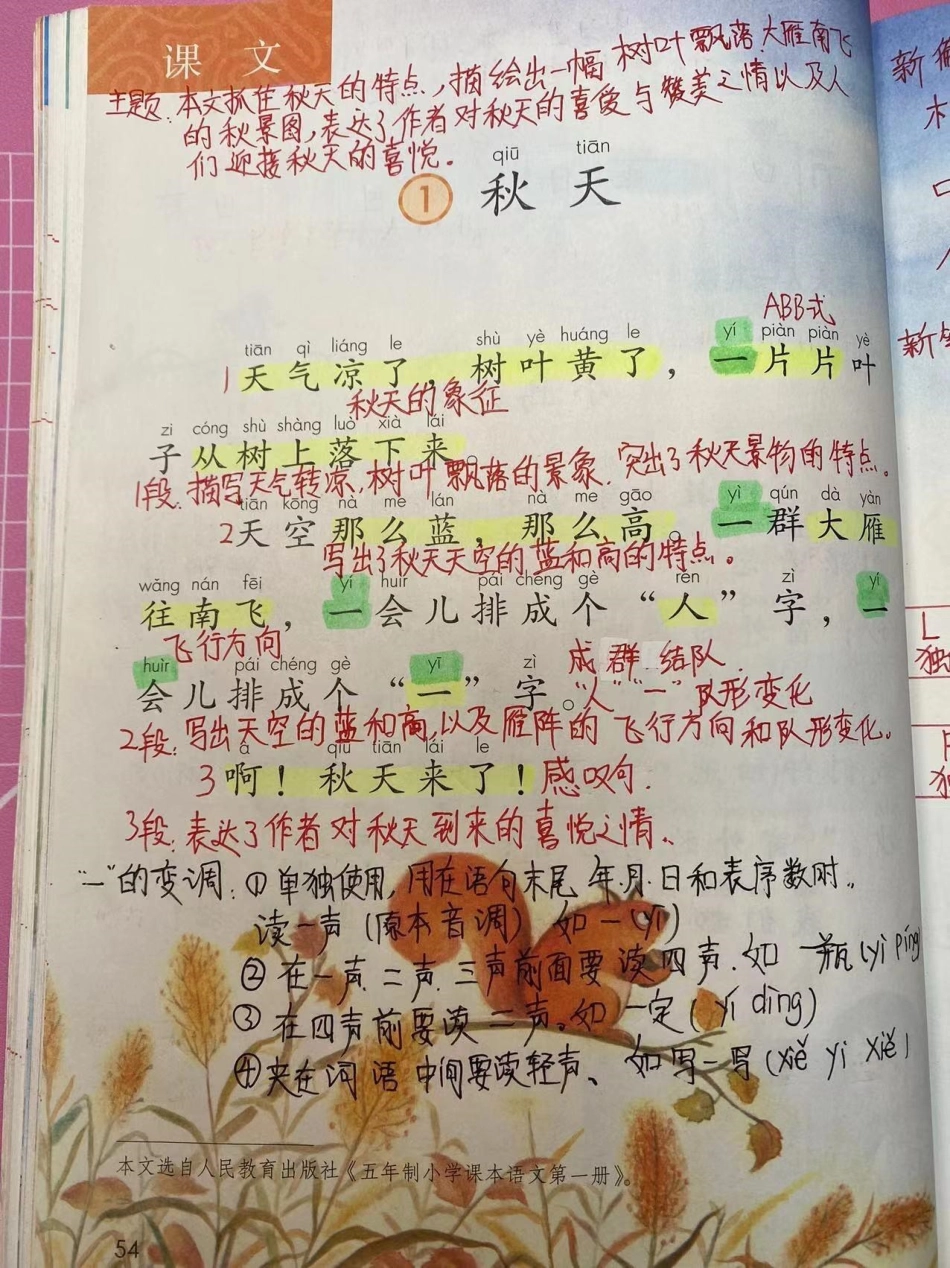 课 文
主题:本文抓住秋天的特点,描绘出一幅树叶飘落、大雁南飞
的秋景图,表达了作者对秋天的喜爱与赞美之情以及人
们迎接秋天的喜悦。
qiū tiān
1 秋 天
ABB式
tiān qì liáng le shù yè huáng le yí piàn piàn yè
1 天气凉了,树叶黄了,一片片叶
秋天的象征
zi cóng shù shàng luò xià lái
子从树上落下来。
1段:描写天气转凉,树叶飘落的景象,突出了秋天景物的特点。
tiān kōng nà me lán nà me gāo yì qún dà yàn
2 天空那么蓝,那么高。一群大雁
写出了秋天天空的蓝和高的特点。
wǎng nán fēi yí huìr pái chéng gè rén zì yí
往南飞,一会儿排成个“人”字,一
飞行方向
成群结队.
huìr pái chéng gè yī zì
会儿排成个“一”字。
“人”“一”队形变化
2段:写出天空的蓝和高,以及雁阵的飞行方向和队形变化。
ā qiū tiān lái le
3 啊!秋天来了!感叹句.
3段:表达了作者对秋天到来的喜悦之情。
“一”的变调:①单独使用,用在语句末尾 年.月.日和表序数时.
读一声(原本音调) 如一(yī)
②在一声.二声.三声前面要读四声.如 一瓶(yì píng
③在四声前要读二声。如一定(yí dìng)
④夹在词语中间要读轻声、如写一写(xiě yi xiě)
本文选自人民教育出版社《五年制小学课本语文第一册》。
54
新
新
独